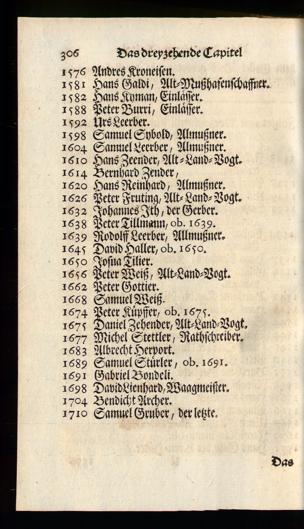 306 Das dreyzehende Capitel
1576 Andres Kroneisen.
1581 Hans Galdi, Alt-Mußhafenschaffner.
1582 Hans Kyman, Einlässer.
1588 Peter Burri, Einlässer.
1592 Urs Leerber.
1598 Samuel Sybold, Allmußner.
1604 Samuel Leerber, Allmußner.
1610 Hans Zeender, Alt-Land-Vogt.
1614 Bernhard Zender,
1620 Hans Reinhard, Allmußner.
1626 Peter Fruting, Alt-Land-Vogt.
1632 Johannes Ith, der Gerber.
1638 Peter Tillmann, ob. 1639.
1639 Rodolff Leerber, Allmußner.
1645 David Haller, ob. 1650.
1650 Josua Tilier.
1656 Peter Weiß, Alt-Land-Vogt.
1662 Peter Gottier.
1668 Samuel Weiß.
1674 Peter Küpffer, ob. 1675.
1675 Daniel Zehender, Alt-Land-Vogt.
1677 Michel Stettler, Rathschreiber.
1683 Albrecht Herport.
1689 Samuel Stürler, ob. 1691.
1691 Gabriel Bondeli.
1698 David Lienhard, Waagmeister.
1704 Bendicht Archer.
1710 Samuel Gruber, der letzte.
Das